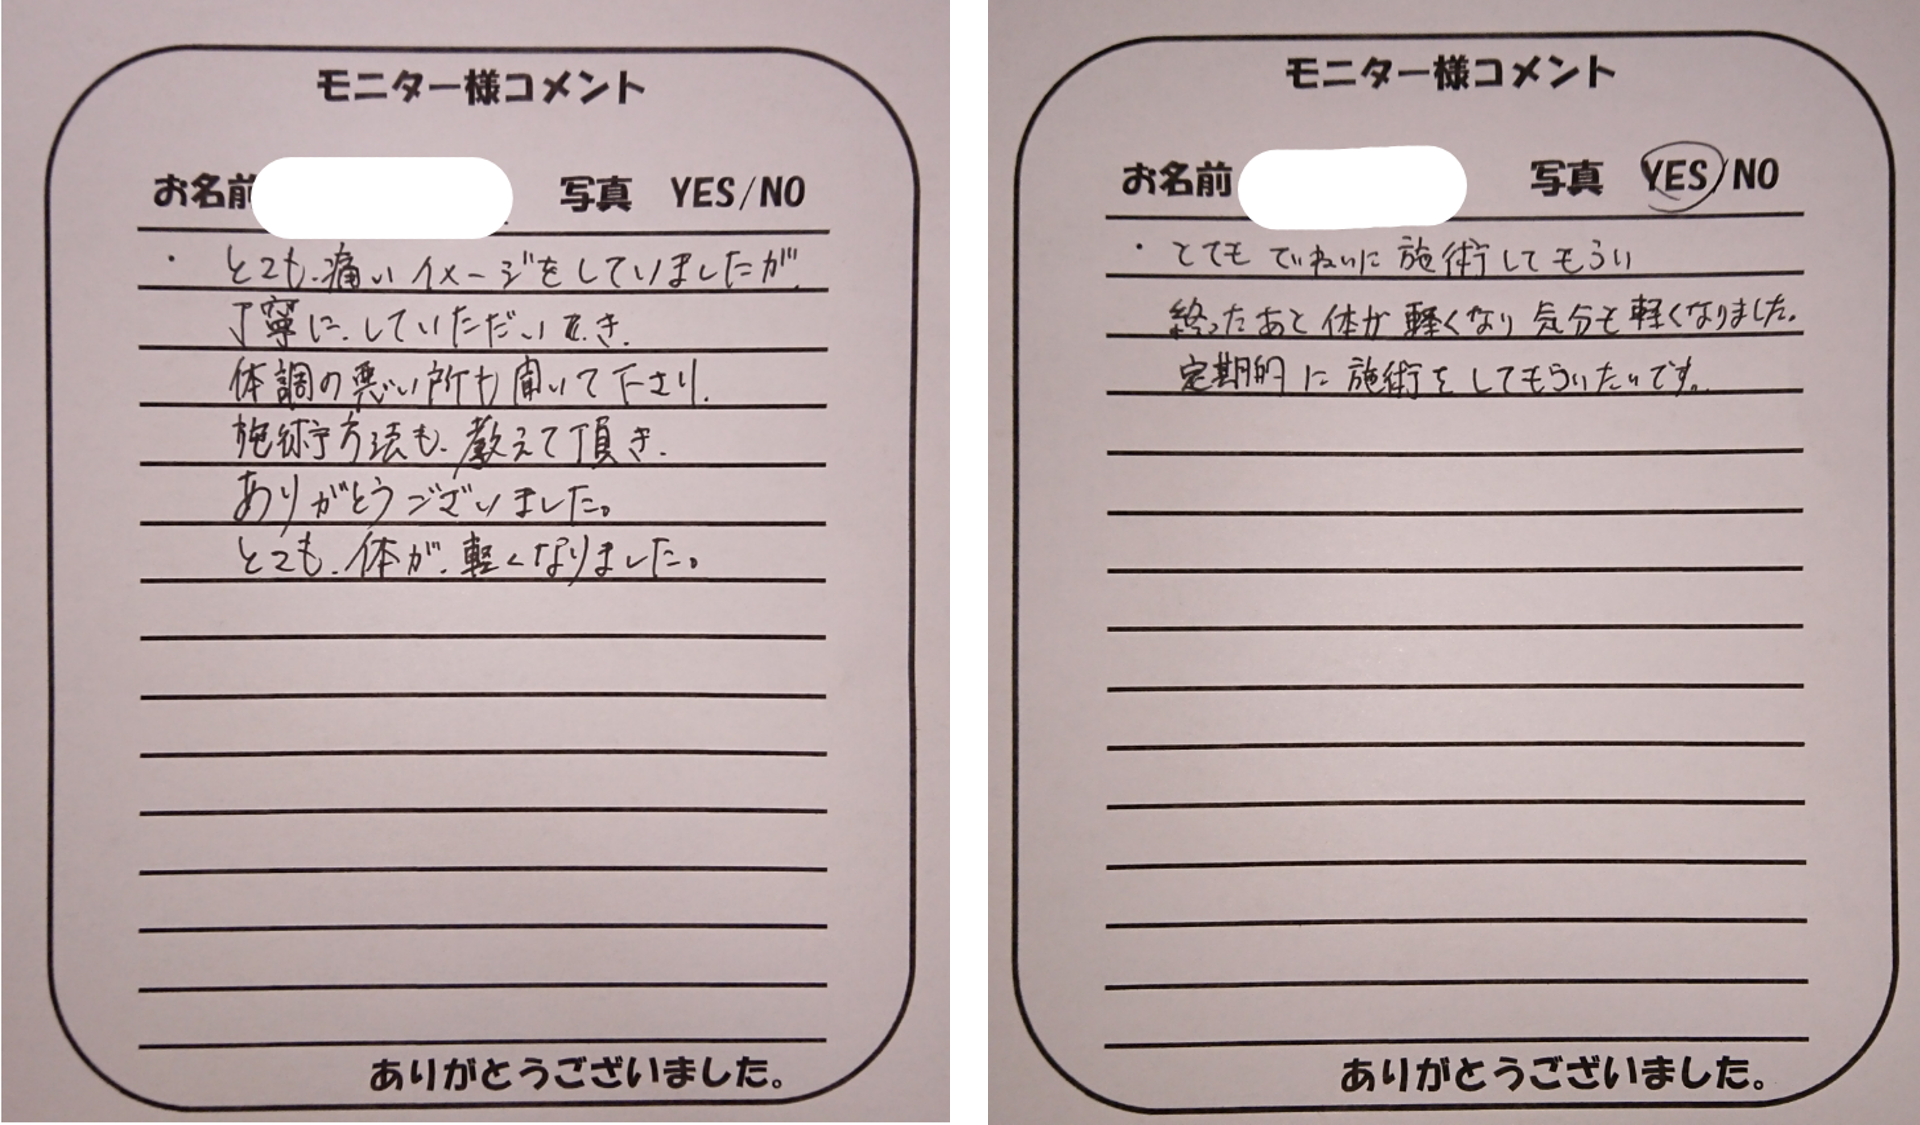 モニター様コメント
お名前 写真 YES/NO
・とても、痛いイメージをしていましたが、
丁寧に、していただいてき、
体調の悪い所も聞いて下さり、
施術方法も、教えて頂き、
ありがとうございました。
とても、体が、軽くなりました。
ありがとうございました。
モニター様コメント
お名前 写真 YES/NO
・とても ていねいに 施術してもらい
終ったあと 体が 軽くなり 気分も 軽くなりました。
定期的に 施術を してもらいたいです。
ありがとうございました。